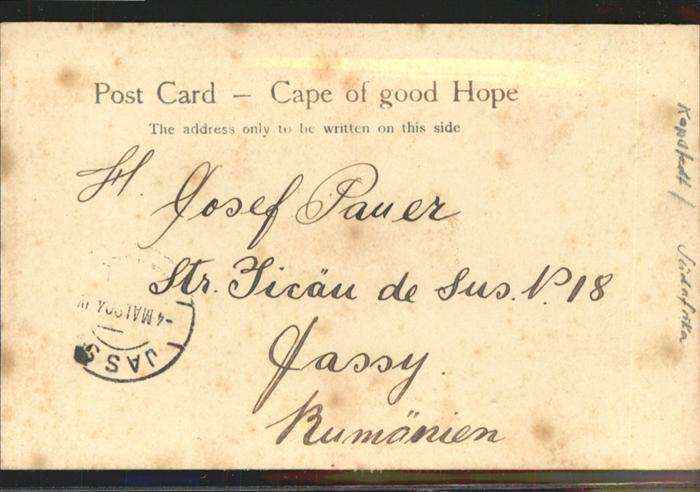 Post Card – Cape of good Hope
The address only to be written on this side
H. Josef Pauer
Str. Ticău de Sus. N. 18
Jassy.
Rumänien
JASS
4 MAI
Kapstadt / Südafrika